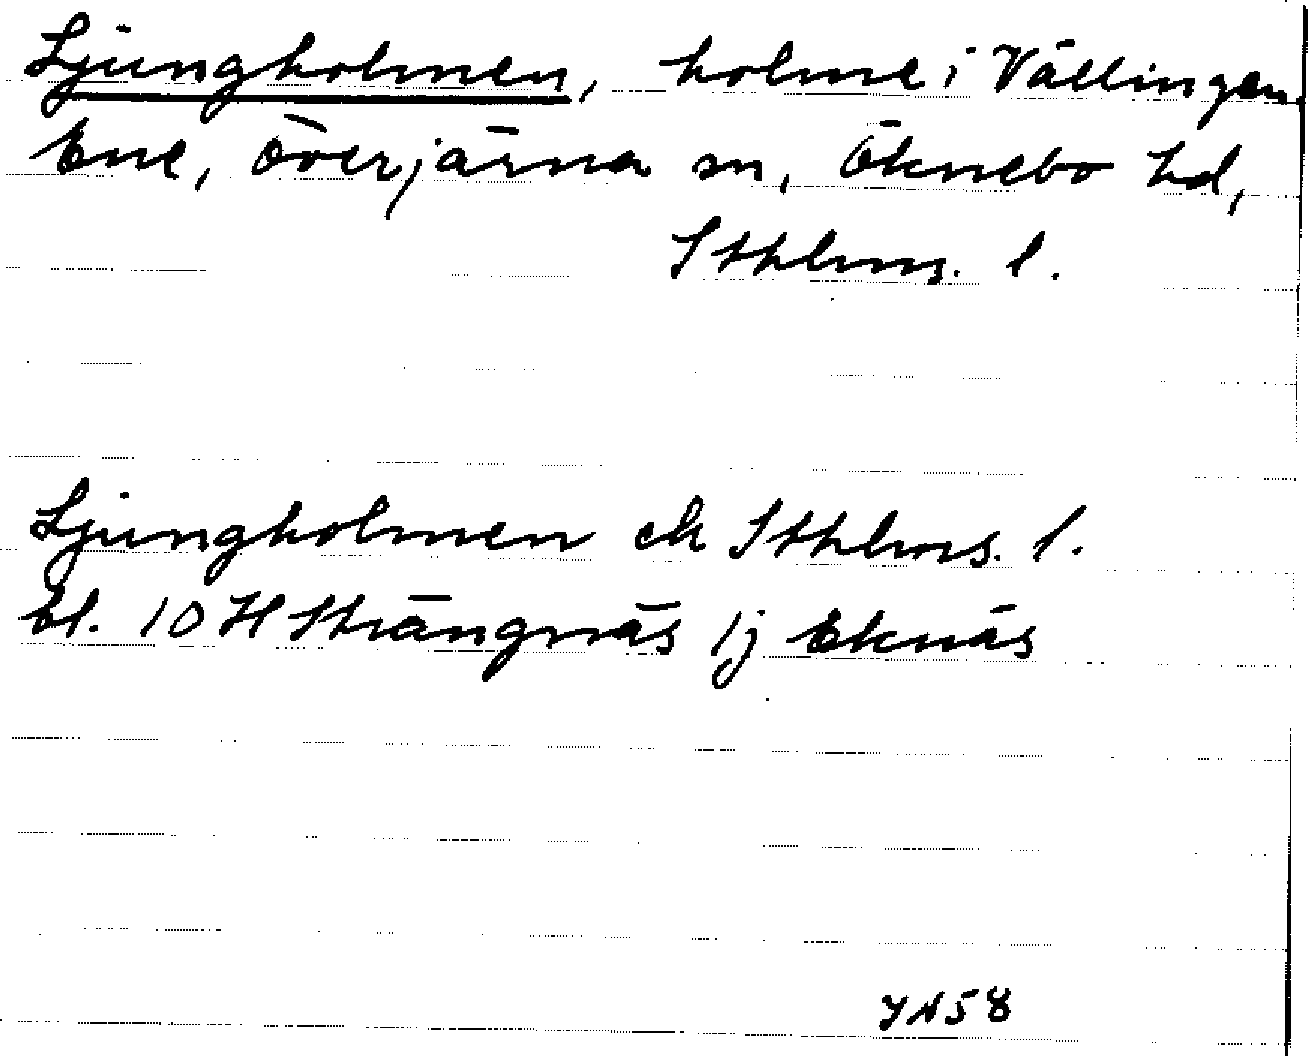 Ljungholmen, holme i Vällingen
Ene, Överjärna sn, Öknebo hd,
Sthlms. l.
Ljungholmen ek Sthlms. l.
bl. 10 H Strängnäs 1j Eknäs
YN58